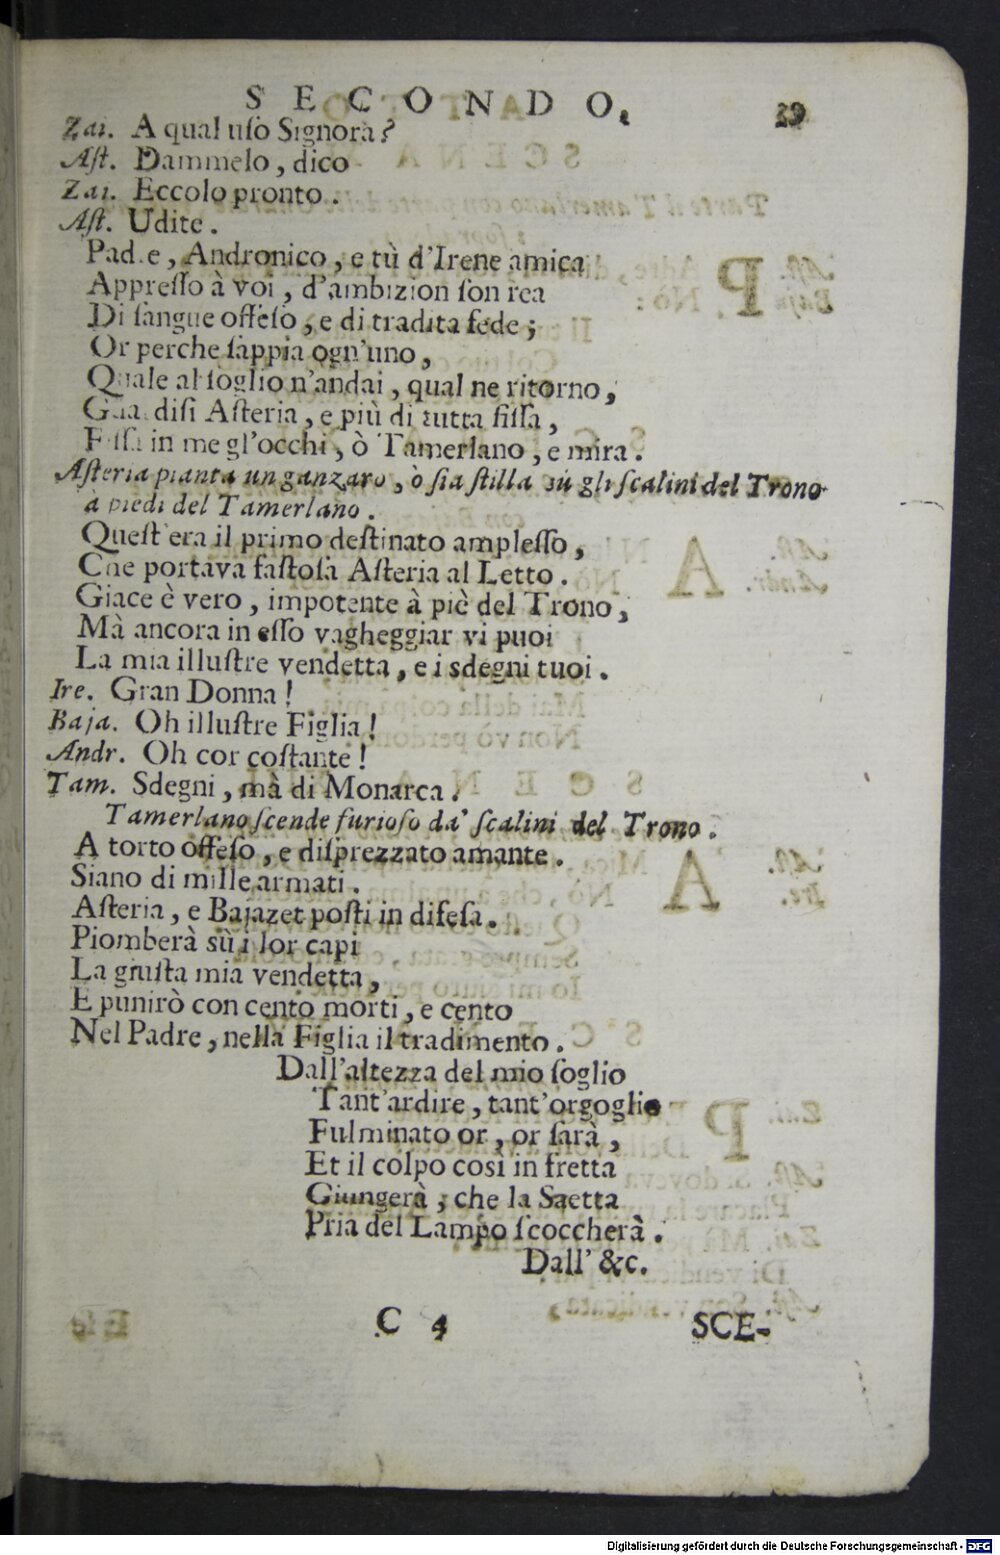 SECONDO. 39
Zai. A qual uſo Signora?
Aſt. Dammelo, dico
Zai. Eccolo pronto.
Aſt. Udite.
Pad.e, Andronico, e tù d'Irene amica
Appreſſo à voi, d'ambizion ſon rea
Di ſangue offeſo, e di tradita fede;
Or perche ſappia ogn'uno,
Quale al ſoglio n'andai, qual ne ritorno,
Gua.diſi Aſteria, e più di tutta fiſſa,
Fiſſa in me gl'occhi, ò Tamerlano, e mira.
Aſteria pianta un ganzaro, ò ſia ſtilla sù gli ſcalini del Trono
a piedi del Tamerlano.
Queſt'era il primo deſtinato ampleſſo,
Che portava faſtoſa Aſteria al Letto.
Giace è vero, impotente à piè del Trono,
Mà ancora in eſſo vagheggiar vi puoi
La mia illuſtre vendetta, e i sdegni tuoi.
Ire. Gran Donna!
Baja. Oh illuſtre Figlia!
Andr. Oh cor coſtante!
Tam. Sdegni, mà di Monarca.
Tamerlano ſcende furioſo da' ſcalini del Trono.
A torto offeſo, e diſprezzato amante.
Siano di mille armati.
Aſteria, e Bajazet poſti in difeſa.
Piomberà sù i lor capi
La giuſta mia vendetta,
E punirò con cento morti, e cento
Nel Padre, nella Figlia il tradimento.
Dall'altezza del mio ſoglio
Tant'ardire, tant'orgoglio
Fulminato or, or ſarà,
Et il colpo così in fretta
Giungerà, che la Saetta
Pria del Lampo ſcoccherà.
Dall' &c.
C 4 SCE-
Digitalisierung gefördert durch die Deutsche Forschungsgemeinschaft - DFG